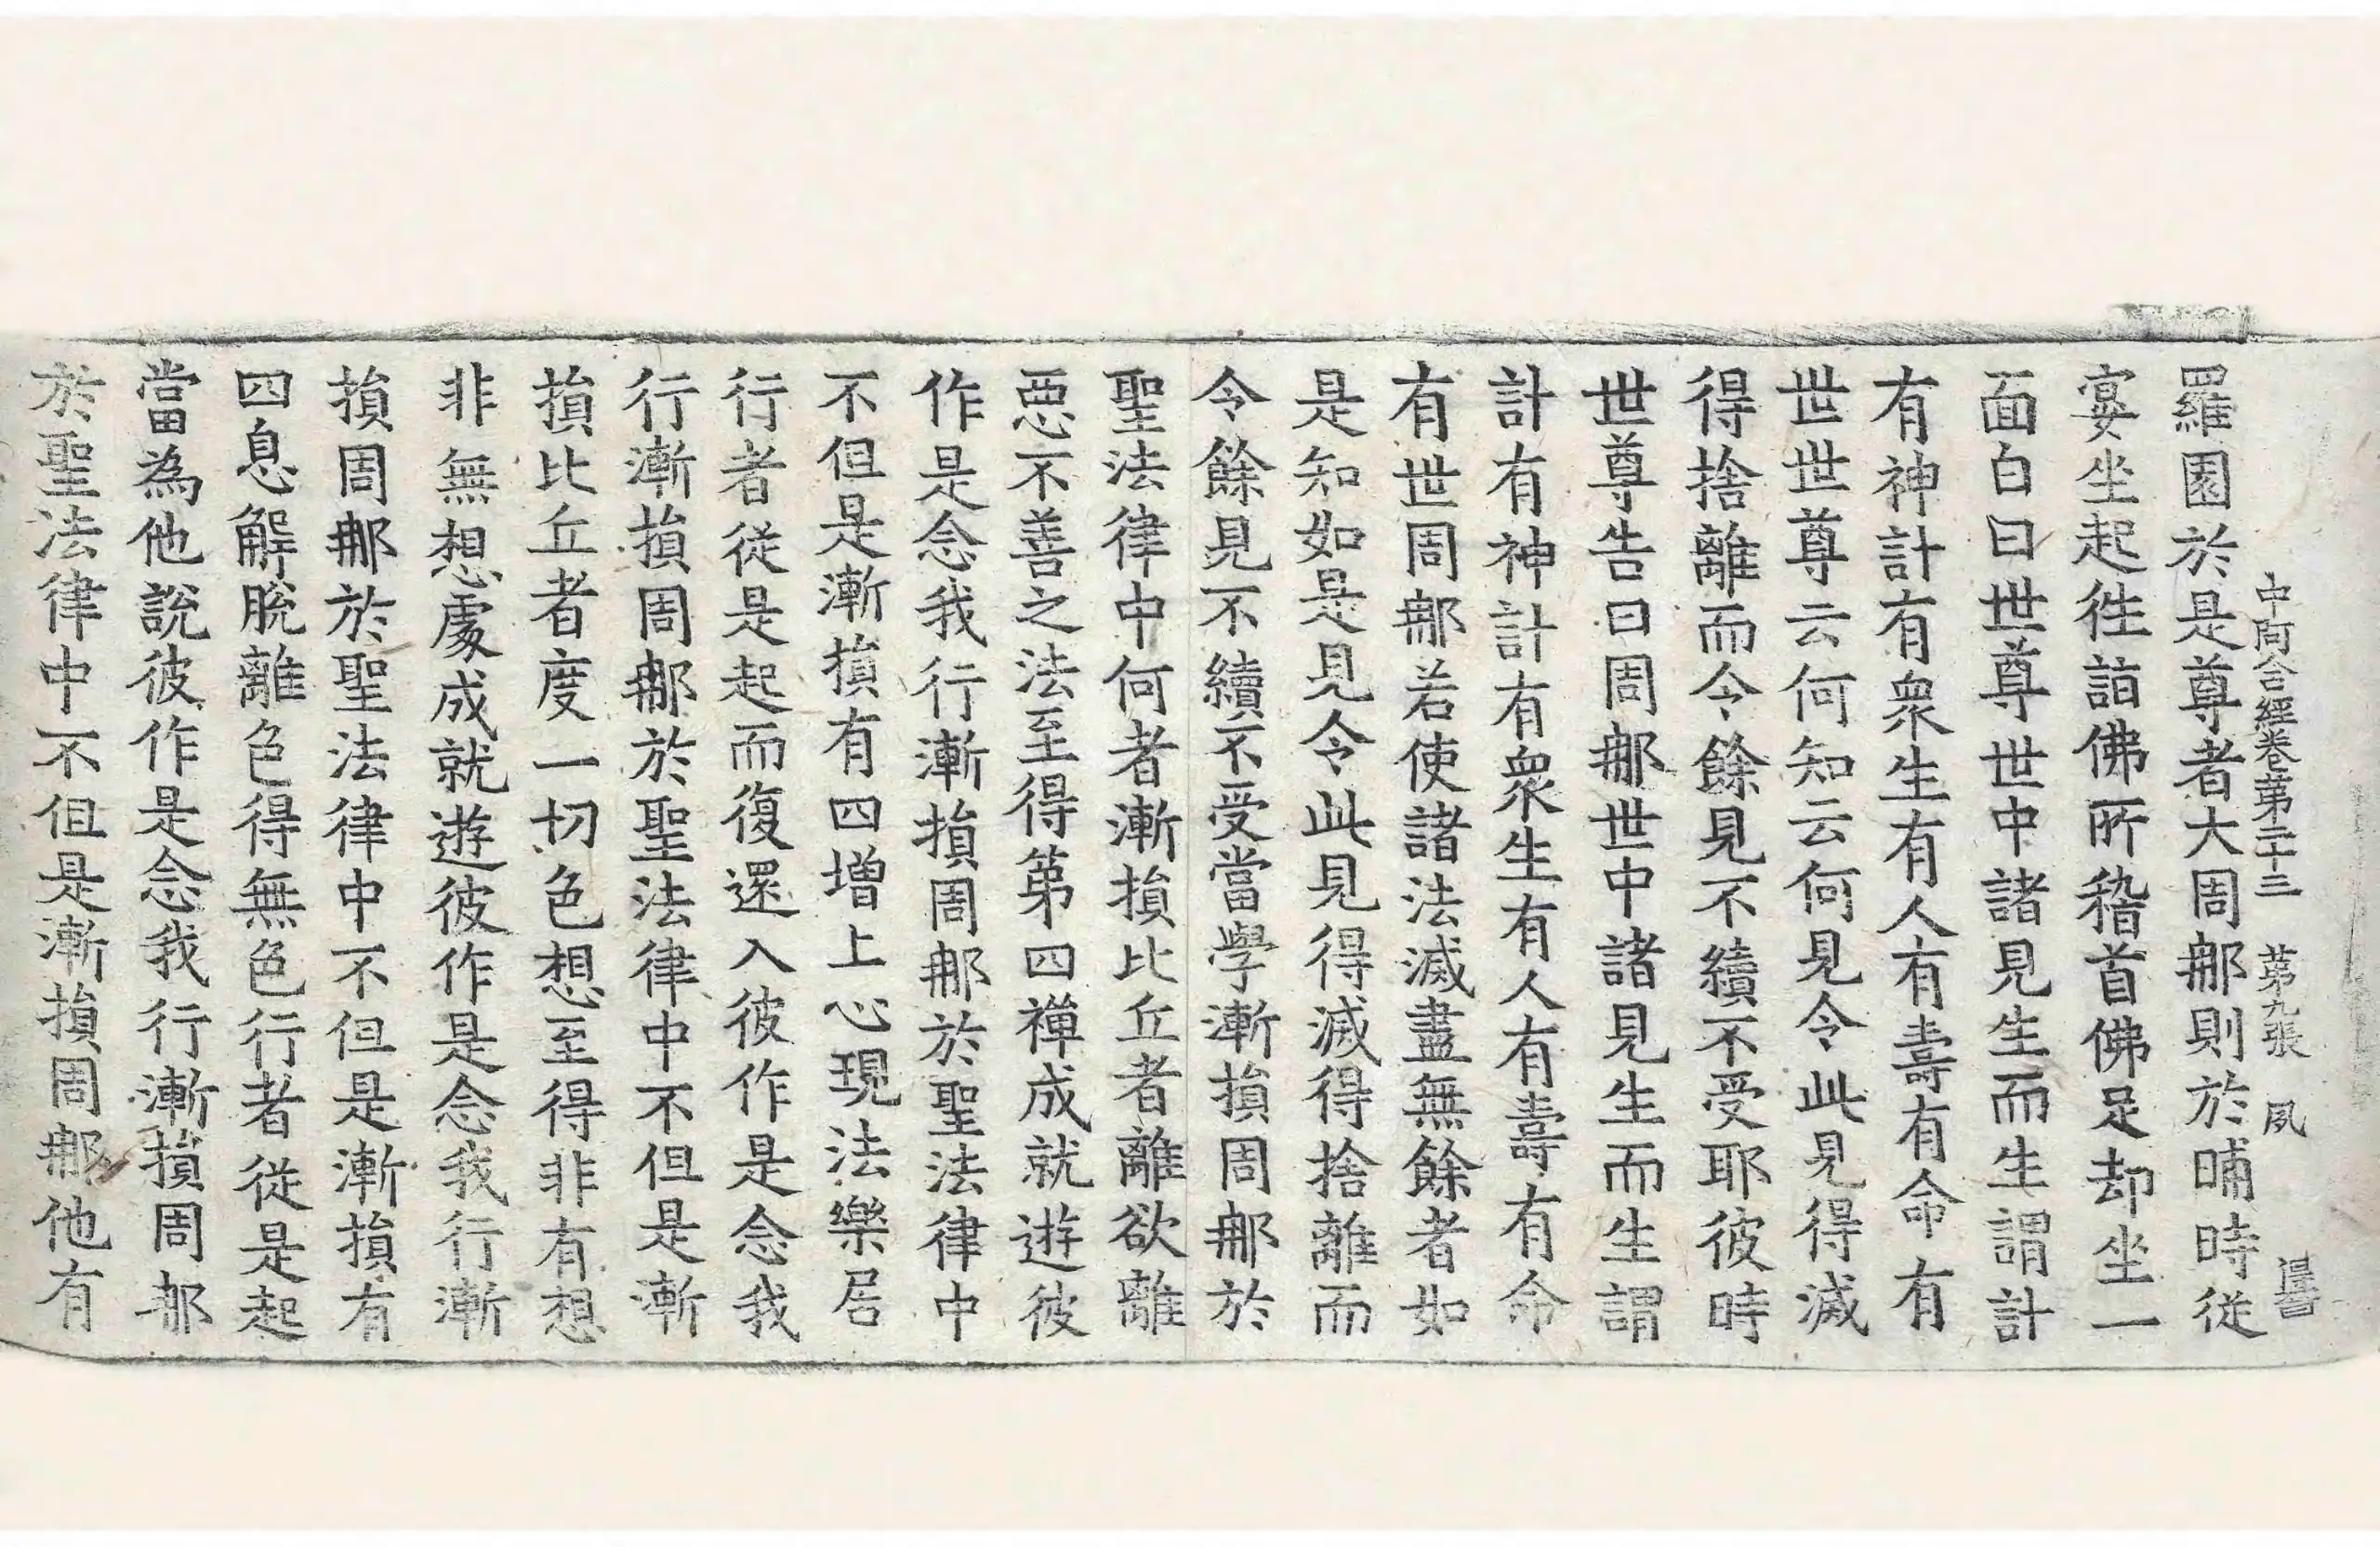 羅園於是尊者大周那則於晡時從
中阿含經卷第二十三 第九張 夙
宴坐起徃詣佛所稽首佛足却坐一
面白曰世尊世中諸見生而生謂計
有神計有衆生有人有壽有命有
世世尊云何知云何見令此見得滅
得捨離而令餘見不續不受耶彼時
世尊告曰周那世中諸見生而生謂
計有神計有衆生有人有壽有命
有世周那若使諸法滅盡無餘者如
是知如是見令此見得滅得捨離而
令餘見不續不受當學漸損周那於
聖法律中何者漸損比丘者離欲離
惡不善之法至得第四禪成就遊彼
作是念我行漸損周那於聖法律中
不但是漸損有四增上心現法樂居
行者從是起而復還入彼作是念我
行漸損周那於聖法律中不但是漸
損比丘者度一切色想至得非有想
非無想處成就遊彼作是念我行漸
損周那於聖法律中不但是漸損有
四息解脫離色得無色行者從是起
當為他說彼作是念我行漸損周那
於聖法律中不但是漸損周那他有